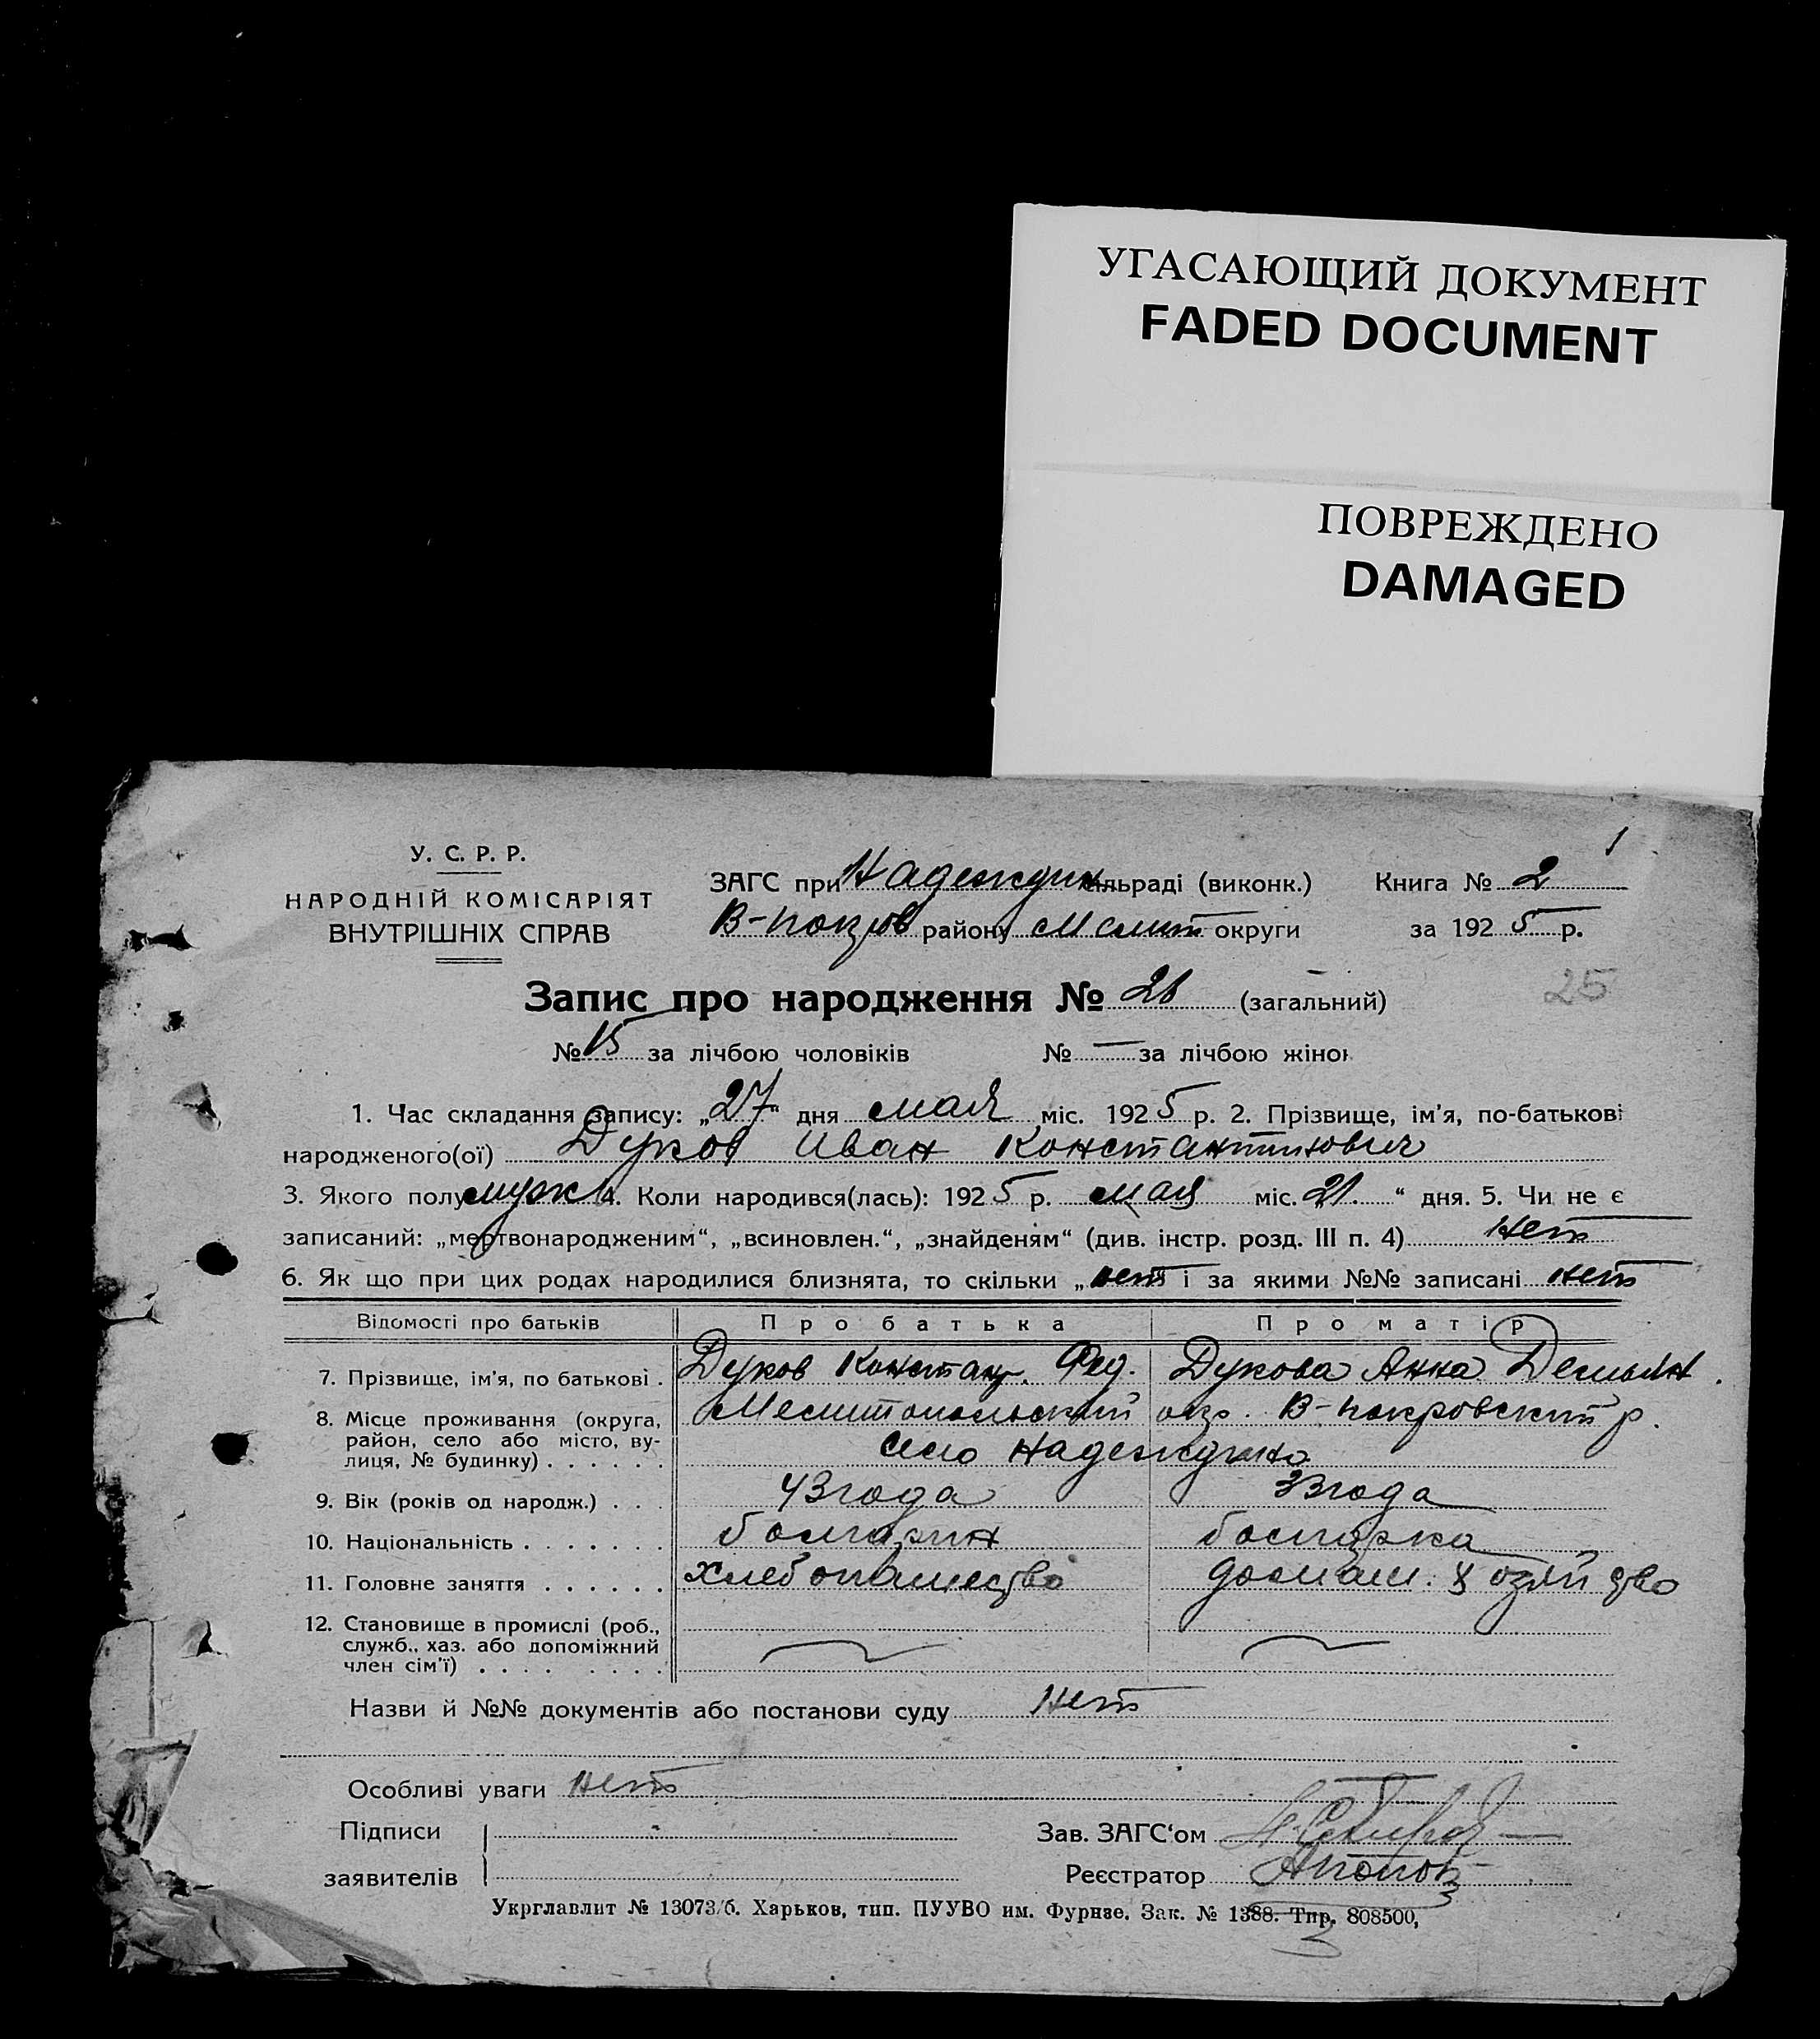 УГАСАЮЩИЙ ДОКУМЕНТ
FADED DOCUMENT
ПОВРЕЖДЕНО
DAMAGED
1
У. С. Р. Р.
НАРОДНІЙ КОМІСАРІЯТ
ВНУТРІШНІХ СПРАВ
ЗАГС при Надеждин сільраді (виконк.) Книга № 2
В-покров району Мелит округи за 1925 р.
Запис про народження № 26 (загальний) 25
№ 15 за лічбою чоловіків № — за лічбою жінок
1. Час складання запису: „27“ дня мая міс. 1925 р. 2. Прізвище, ім'я, по-батькові
народженого(ої) Духов Иван Константинович
3. Якого полу муж 4. Коли народився(лась): 1925 р. мая міс. „21.“ дня. 5. Чи не є
записаний: „мертвонародженим“, „всиновлен.“, „знайденям“ (див. інстр. розд. III п. 4) нет
6. Як що при цих родах народилися близнята, то скільки „нет“ і за якими №№ записані нет
Відомості про батьків Про батька Про матір
7. Прізвище, ім'я, по батькові . Духов Констант. Фед. Духова Анна Демьян.
8. Місце проживання (округа, Мелитопольский окр. В-покровский р.
район, село або місто, ву-
лиця, № будинку) . . . . . . село Надеждино
9. Вік (років од народж.) . . . 43 года 33 года
10. Національність . . . . . . . болгарин болгарка
11. Головне заняття . . . . . . хлебопашество домаш. хозяйство
12. Становище в промислі (роб.,
служб., хаз. або допоміжний
член сім'ї) . . . . . . . .
Назви й №№ документів або постанови суду нет
Особливі уваги нет
Підписи
Зав. ЗАГС‘ом
заявителів
Реєстратор АПопов
Укрглавлит № 13073/б. Харьков, тип. ПУУВО им. Фурнзе. Зак. № 1388. Тир. 808500,